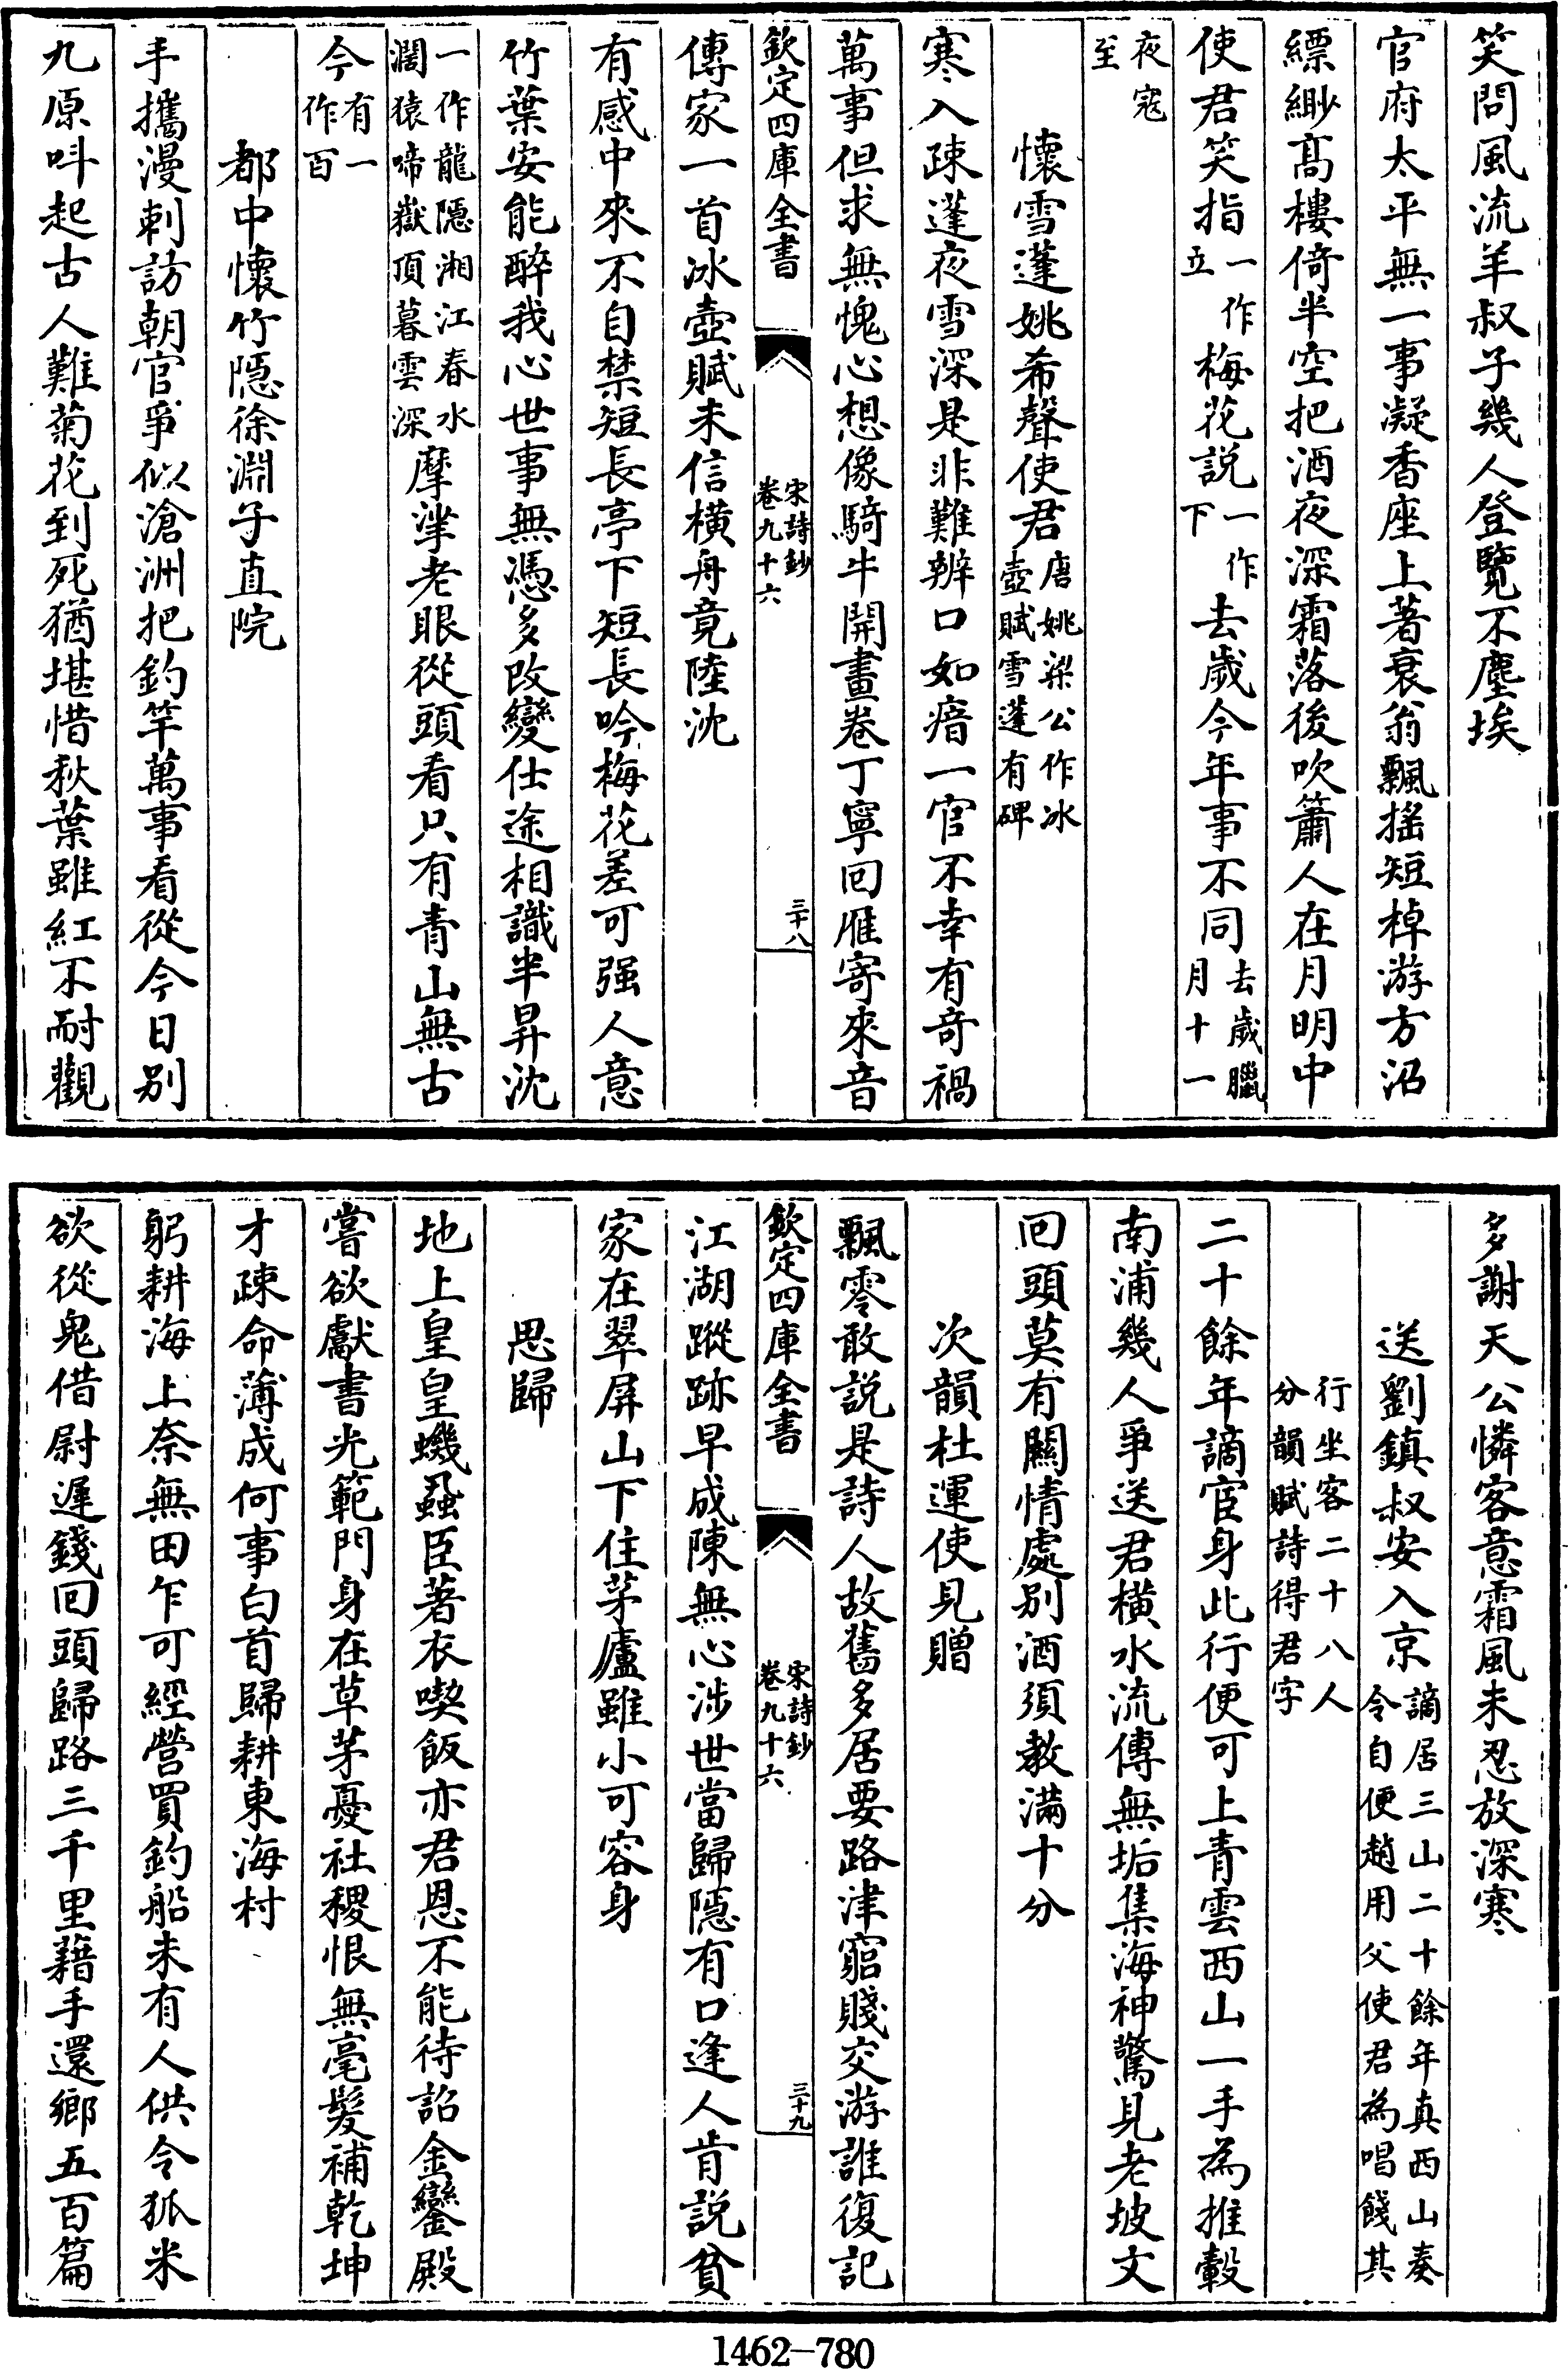 笑問風流羊叔子幾人登覽不塵埃
官府太平無一事凝香座上著衰翁飄搖短棹游方沼
縹緲髙樓倚半空把酒夜深霜落後吹簫人在月明中
使君笑指一作立梅花説一作下去歲今年事不同去歲臘月十一
夜寇至
懐雪蓬姚希聲使君唐姚梁公作冰壺賦雪蓬有碑
寒入疎蓬夜雪深是非難辨口如瘖一官不幸有奇禍
萬事但求無愧心想像騎牛開畫卷丁寧回雁寄來音
欽定四庫全書
宋詩鈔
卷九十六
三十八
傳家一首冰壺賦未信橫舟竟陸沈
有感中來不自禁短長亭下短長吟梅花差可强人意
竹葉安能醉我心世事無憑多改變仕途相識半昇沈
一作龍隠湘江春水濶猿啼嶽頂暮雲深摩挲老眼從頭看只有青山無古
今有一作百
都中懐竹隠徐淵子直院
手攜漫刺訪朝官爭似滄洲把釣竿萬事看從今日别
九原呌起古人難菊花到死猶堪惜秋葉雖紅不耐觀
多謝天公憐客意霜風未忍放深寒
送劉鎮叔安入京謫居三山二十餘年真西山奏令自便趙用父使君為唱餞其
行坐客二十八人分韻賦詩得君字
二十餘年謫宦身此行便可上青雲西山一手為推轂
南浦幾人爭送君橫水流傳無垢集海神驚見老坡文
回頭莫有闗情處别酒須教滿十分
次韻杜運使見贈
飄零敢説是詩人故舊多居要路津窮賤交游誰復記
欽定四庫全書
宋詩鈔
卷九十六
三十九
江湖蹤跡早成陳無心涉世當歸隠有口逢人肯説貧
家在翠屏山下住茅廬雖小可容身
思歸
地上皇皇蟣蝨臣著衣喫飯亦君恩不能待詔金鑾殿
嘗欲獻書光範門身在草茅憂社稷恨無毫髮補乾坤
才疎命薄成何事白首歸耕東海村
躬耕海上奈無田乍可經營買釣船未有人供令狐米
欲從鬼借尉遲錢回頭歸路三千里藉手還鄉五百篇
1462—780